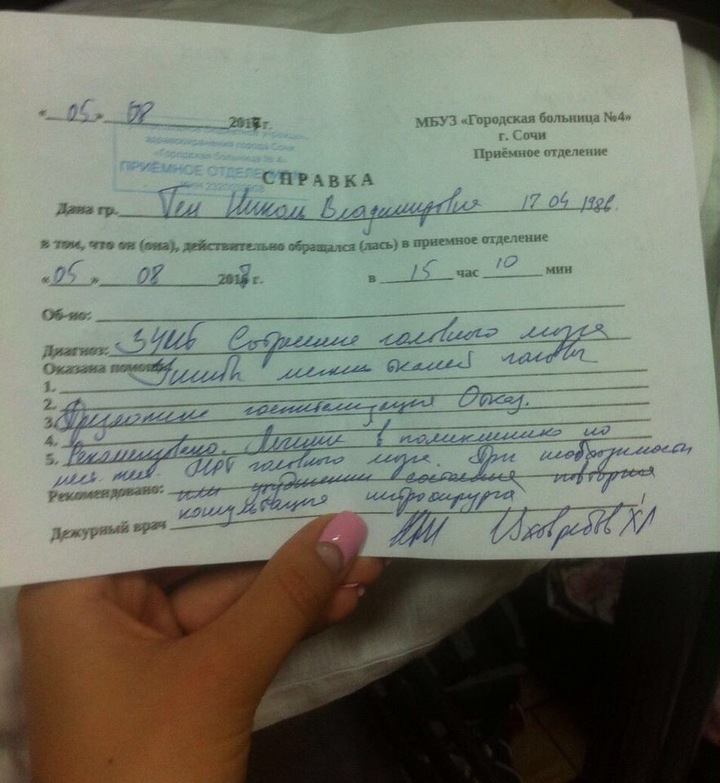 «05» 08 2017г.
МБУЗ «Городская больница №4»
г. Сочи
Приёмное отделение
здравоохранения города Сочи
«Городская больница № 4»
ПРИЁМНОЕ ОТДЕЛЕНИЕ
СПРАВКА
Дана гр. Ген Николь Владимировна 17 04 1986.
в том, что он (она), действительно обращался (лась) в приемное отделение
«05» 08 2017г. в 15 час 10 мин
Об-но:
Диагноз: ЗЧМТ Сотрясение головного мозга
Ушибы мягких тканей головы
Оказана помощь:
1.
2.
3. Предложена госпитализация Отказ.
4.
5. Рекомендовано. Лечение в поликлинике по
головного мозга. При необходимости
Рекомендовано: или ухудшении состояния повторная
консультация нейрохирурга
Дежурный врач